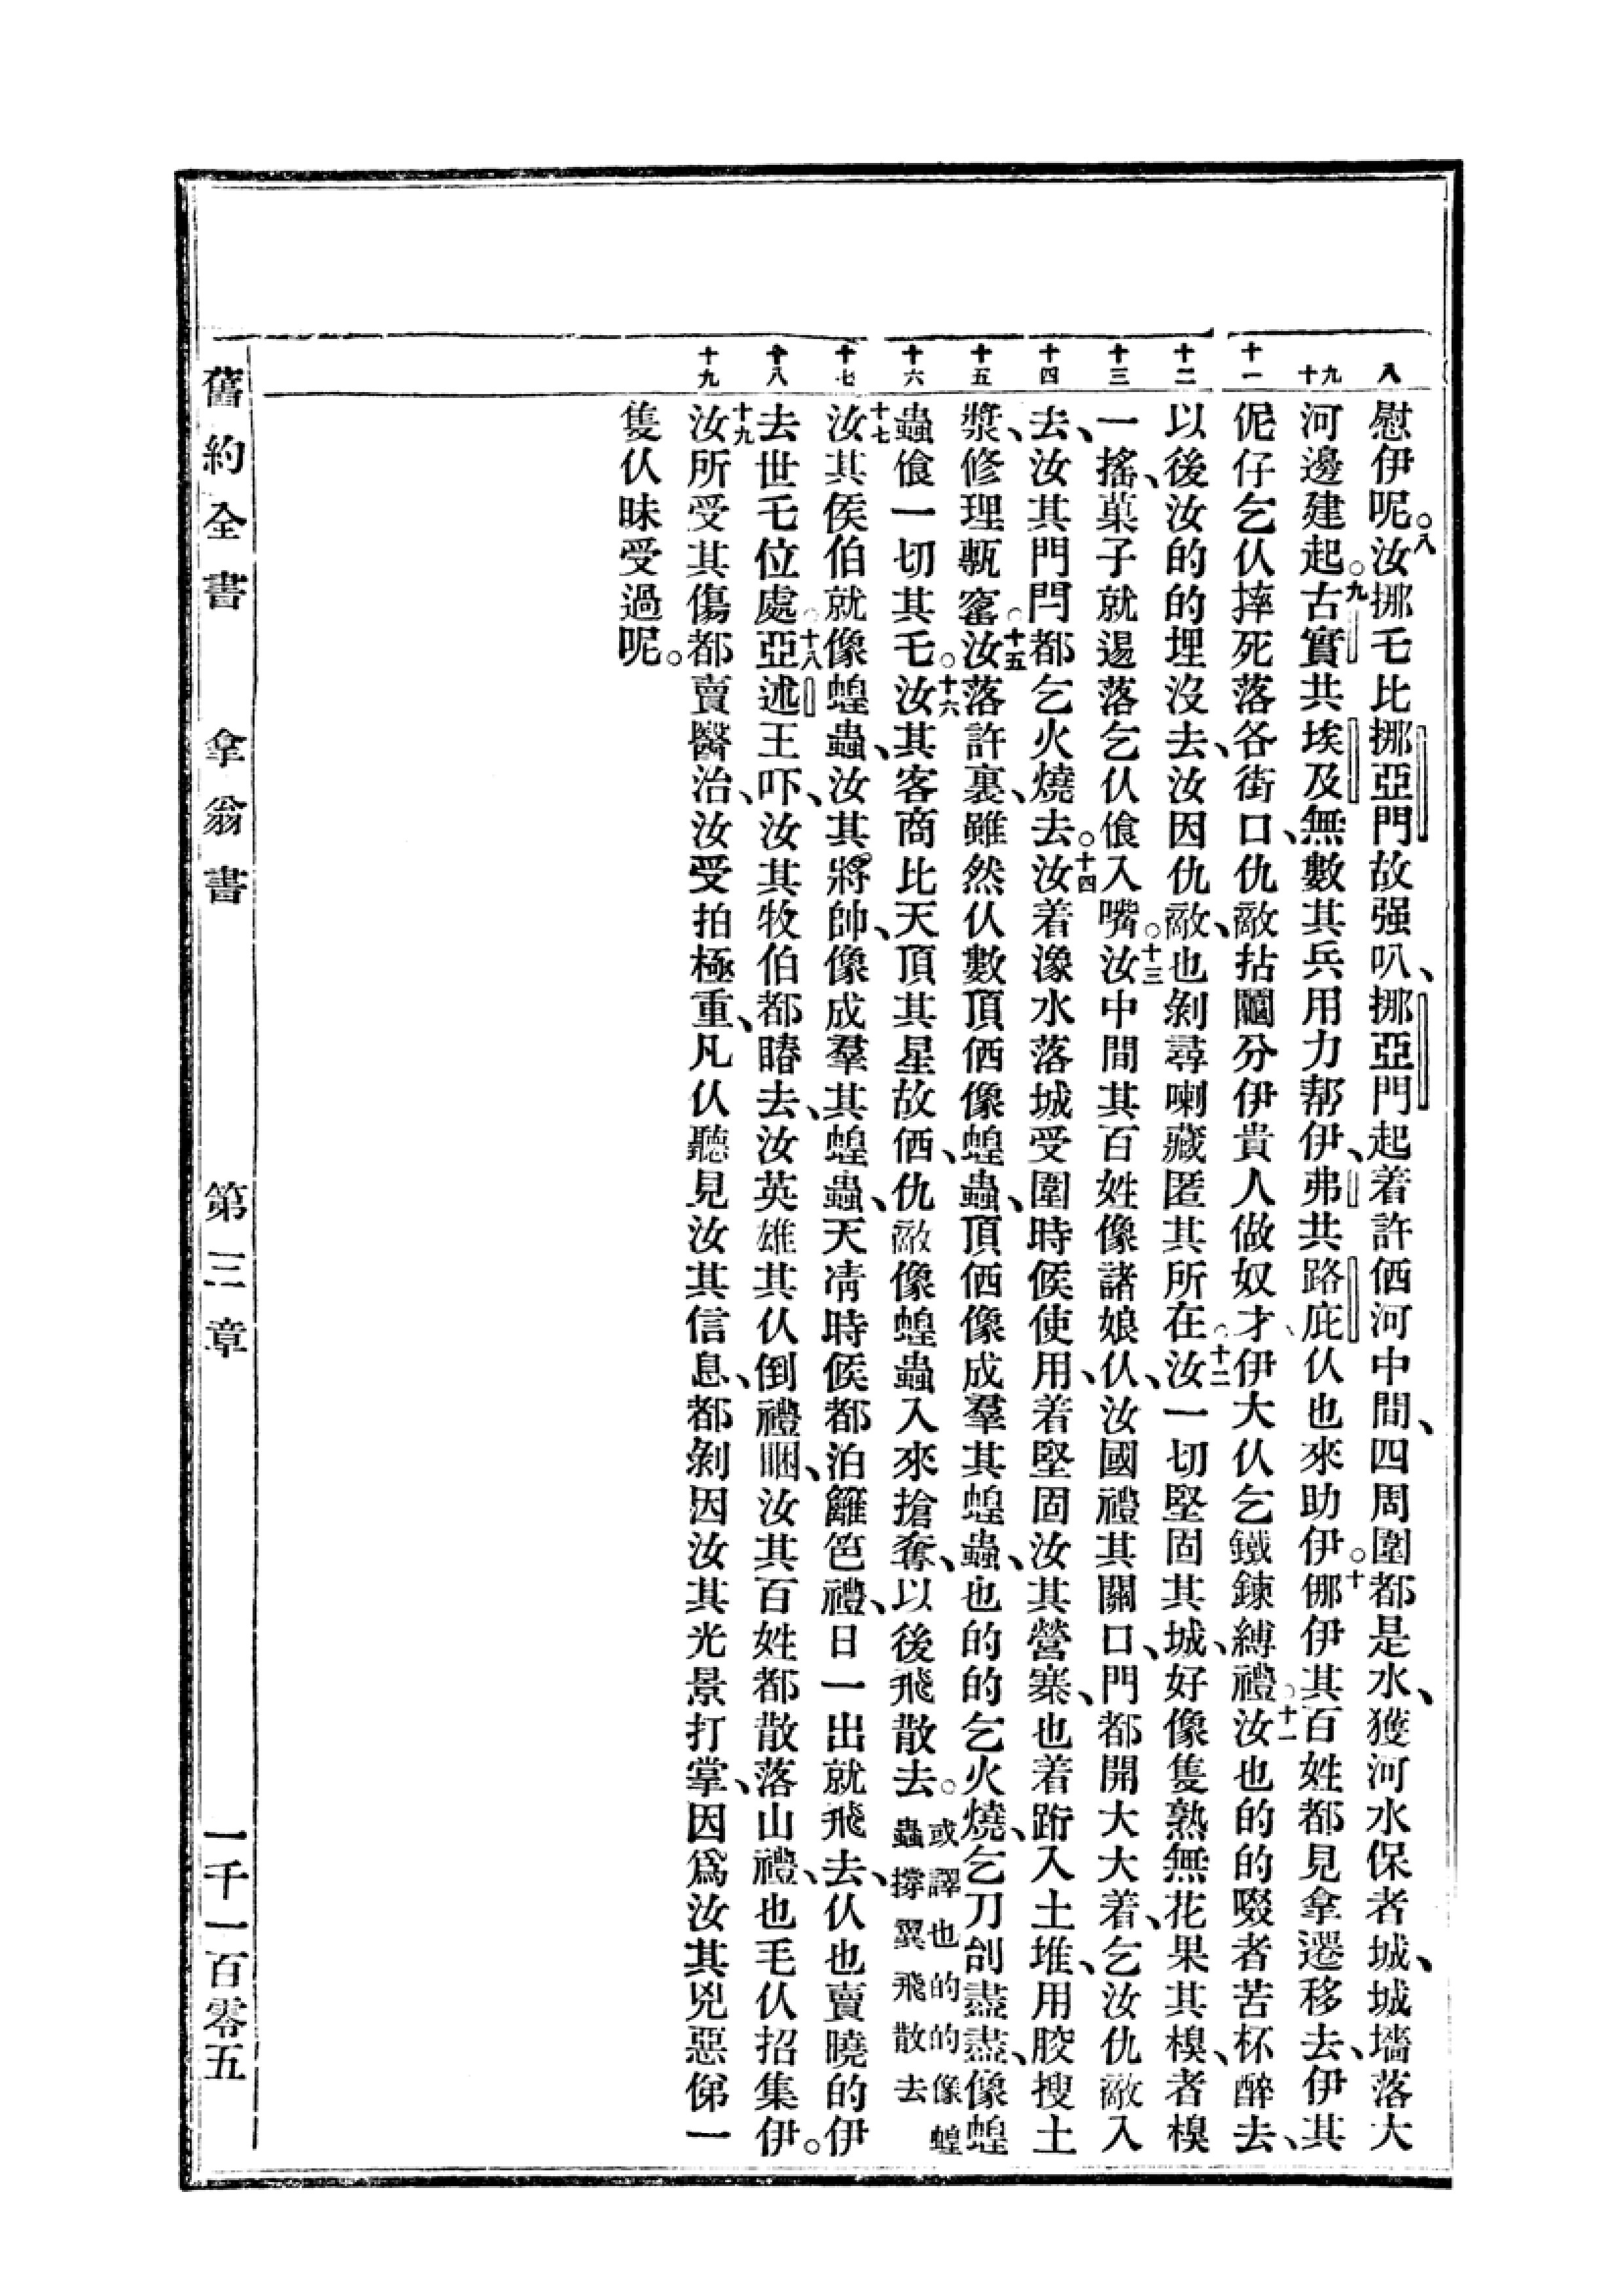 八
九
十
十一
十二
十三
十四
十五
十六
十七
十八
十九
慰伊呢。八汝挪乇比挪亞門故强叭、挪亞門起着許㕭河中間、四周圍都是水、獲河水保者城、城墻落大
河邊建起。九古實共埃及無數其兵用力帮伊、弗共路庇仈也來助伊。十㑚伊其百姓都見拿遷移去、伊其
伲仔乞仈摔死落各街口、仇敵拈鬮分伊貴人做奴才、伊大仈乞鐵鍊縛禮。十一汝也的的啜者苦杯醉去、
以後汝的的埋沒去、汝因仇敵、也剝尋喇藏匿其所在。十二汝一切堅固其城、好像隻熟無花果其模、者模
一搖、菓子就逿落乞仈飺入嘴。十三汝中間其百姓像諸娘仈、汝國禮其關口、門都開大大着、乞汝仇敵入
去、汝其門閂都乞火燒去。十四汝着㵂水落城受圍時候使用、着堅固汝其營寨、也着䟰入土堆、用骹搜土
漿、修理甎窰。十五汝落許裏、雖然仈數頂㕭像蝗蟲、頂㕭像成羣其蝗蟲、也的的乞火燒、乞刀刣盡盡、像蝗
蟲飺一切其乇。十六汝其客商比天頂其星故㕭、仇敵像蝗蟲入來搶奪、以後飛散去。或譯也的的像蝗蟲撐翼飛散去
十七汝其侯伯就像蝗蟲、汝其將帥、像成羣其蝗蟲、天凊時候都泊籬笆禮、日一出就飛去、仈也賣曉的伊
去世乇位處。十八亞述王吓、汝其牧伯都䁐去、汝英雄其仈倒禮睏、汝其百姓都散落山禮、也毛仈招集伊。
十九汝所受其傷都賣醫治、汝受拍極重、凡仈聽見汝其信息、都剝因汝其光景打掌、因爲汝其兇惡俤一
隻仈昧受過呢。
舊約全書　拿翁書　第三章　一千一百零五